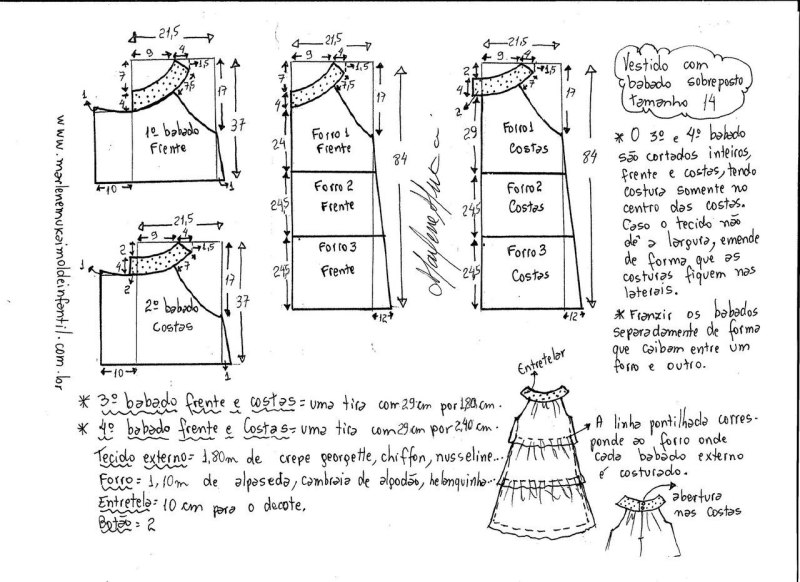 21,5
9
4
1,5
7
4
7,5
17
37
1
1º babado
Frente
10
1
21,5
9
4
1,5
2
4
2
7
17
37
1
2º babado
Costas
10
1
www.marlenemukaimoldeinfantil.com.br
21,5
9
4
1,5
7
4
7,5
17
84
24
Forro 1
Frente
24,5
Forro 2
Frente
24,5
Forro 3
Frente
12
Marlene Mukai
21,5
9
4
1,5
2
4
2
7
17
84
29
Forro 1
Costas
24,5
Forro 2
Costas
24,5
Forro 3
Costas
12
Vestido com
babado sobreposto
tamanho 14
* O 3º e 4º babado
são cortados inteiros,
frente e costas, tendo
costura somente no
centro das costas.
Caso o tecido não
dê a largura, emende
de forma que as
costuras fiquem nas
laterais.
* Franzir os babados
separadamente de forma
que caibam entre um
forro e outro.
* 3º babado frente e costas = uma tira com 29 cm por 1,80 cm.
* 4º babado frente e Costas = uma tira com 29 cm por 2,40 cm.
Tecido externo = 1,80m de crepe georgette, chiffon, musseline...
Forro = 1,10m de alpaseda, cambraia de algodão, helanquinha...
Entretela = 10 cm para o decote.
Botão = 2
Entretelar
A linha pontilhada corres-
ponde ao forro onde
cada babado externo
é costurado.
abertura
nas costas